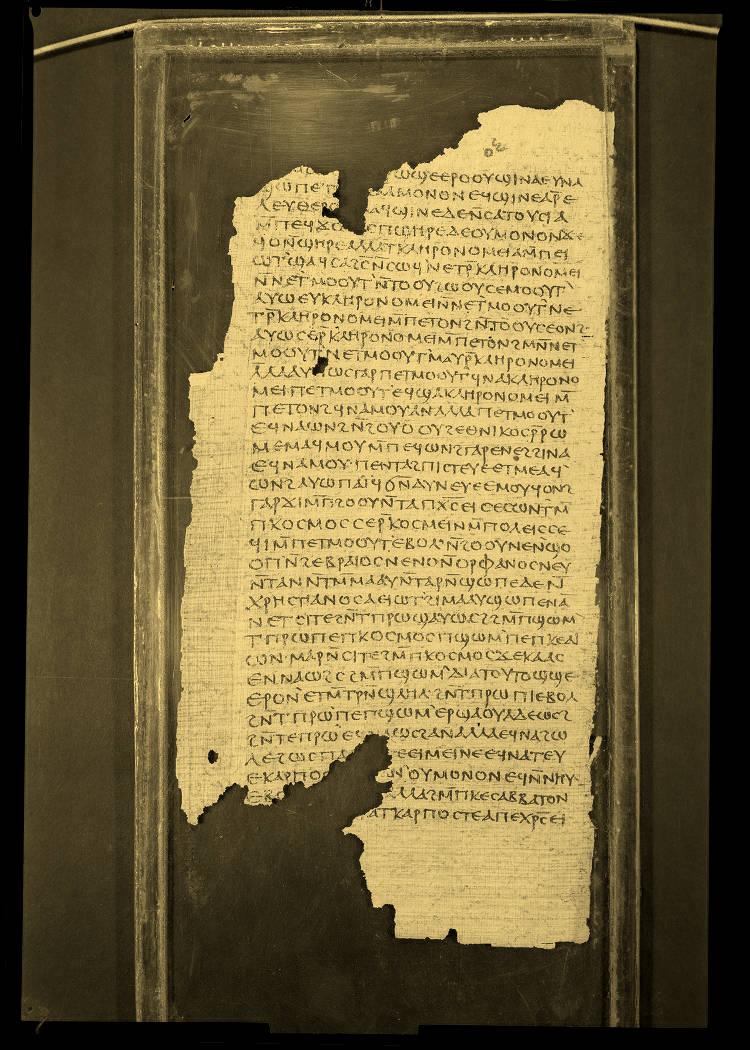 ϣⲱⲉⲉⲣⲟⲟⲩϣⲓⲛⲁⲉⲩⲛⲁ
ϣⲱⲡⲉ ⲙⲟⲛⲟⲛⲉϥϣⲓⲛⲉⲁⲣⲉ
ⲗⲉⲩⲑⲉⲣ ⲁϥϣⲓⲛⲉⲇⲉⲛ̄ⲥⲁⲧⲟⲩⲥⲓⲁ
ⲙ̄ⲡⲉϥϫⲟ ⲥⲡϣⲏⲣⲉⲇⲉⲟⲩⲙⲟⲛⲟⲛϫⲉ
ϥⲟⲛ̄ϣⲏⲣⲉⲁⲗⲗⲁⲧⲕⲗⲏⲣⲟⲛⲟⲙⲉⲓⲁⲙ̄ⲡⲉⲓ
ⲱⲧ`ϣⲁϥⲥⲁϩⲥ̄ⲛ̄ⲥⲱϥ`ⲛⲉⲧⲣ̄ⲕⲗⲏⲣⲟⲛⲟⲙⲉⲓ
ⲛ̄ⲛⲉⲧ`ⲙⲟⲟⲩⲧ`ⲛ̄ⲧⲟⲟⲩϩⲱⲟⲩⲥⲉⲙⲟⲟⲩⲧ`
ⲁⲩⲱⲉⲩⲕⲗⲏⲣⲟⲛⲟⲙⲉⲓⲛ̄ⲛⲉⲧ`ⲙⲟⲟⲩⲧ`ⲛⲉ
ⲧⲣ̄ⲕⲗⲏⲣⲟⲛⲟⲙⲉⲓⲙ̄ⲡⲉⲧⲟⲛϩⲛ̄ⲧⲟⲟⲩⲥⲉⲟⲛϩ`
ⲁⲩⲱⲥⲉⲣ̄ⲕⲗⲏⲣⲟⲛⲟⲙⲉⲓⲙ̄ⲡⲉⲧⲟⲛϩⲙⲛ̄ⲛⲉⲧ
ⲙⲟⲟⲩⲧ`ⲛⲉⲧⲙⲟⲟⲩⲧ`ⲙⲁⲩⲣ̄ⲕⲗⲏⲣⲟⲛⲟⲙⲉⲓ
ⲗⲁⲁⲩⲡⲱⲥⲅⲁⲣⲡⲉⲧⲙⲟⲟⲩⲧ`ϥⲛⲁⲕⲗⲏⲣⲟⲛⲟ
ⲙⲉⲓⲡⲉⲧⲙⲟⲟⲩⲧ`ⲉϥϣⲁⲕⲗⲏⲣⲟⲛⲟⲙⲉⲓⲙ̄
ⲡⲉⲧⲟⲛϩϥⲛⲁⲙⲟⲩⲁⲛⲁⲗⲗⲁⲡⲉⲧⲙⲟⲟⲩⲧ`
ⲉϥⲛⲁⲱⲛϩⲛ̄ϩⲟⲩⲟⲟⲩϩⲉⲑⲛⲓⲕⲟⲥⲣ̄ⲣⲱ
ⲙⲉⲙⲁϥⲙⲟⲩⲙ̄ⲡⲉϥⲱⲛϩⲅⲁⲣⲉⲛⲉϩϩⲓⲛⲁ
ⲉϥⲛⲁⲙⲟⲩ·ⲡⲉⲛⲧⲁϩⲡⲓⲥⲧⲉⲩⲉⲉⲧⲙⲉⲁϥ`
ⲱⲛϩⲁⲩⲱⲡⲁⲓ̈ϥϭⲛ̄ⲇⲩⲛⲉⲩⲉⲉⲙⲟⲩϥⲟⲛϩ
ⲅⲁⲣϫⲓⲙ̄ⲫⲟⲟⲩⲛ̄ⲧⲁⲡⲭ̄ⲥ̄ⲉⲓⲥⲉⲥⲱⲛⲧⲙ̄
ⲡⲕⲟⲥⲙⲟⲥⲥⲉⲣ̄ⲕⲟⲥⲙⲉⲓⲛⲙ̄ⲡⲟⲗⲉⲓⲥⲥⲉ
ϥⲓⲙ̄ⲡⲉⲧⲙⲟⲟⲩⲧ`ⲉⲃⲟⲗ`ⲛ̄ϩⲟⲟⲩⲛⲉⲛϣⲟ
ⲟⲡ`ⲛ̄ϩⲉⲃⲣⲁⲓⲟⲥⲛⲉⲛⲟⲛ̄ⲟⲣⲫⲁⲛⲟⲥⲛⲉⲩ
ⲛ̄ⲧⲁⲛⲛ̄ⲧⲙ̄ⲙⲁⲁⲩⲛ̄ⲧⲁⲣⲛ̄ϣⲱⲡⲉⲇⲉⲛ̄
ⲭⲣⲏⲥⲧⲓⲁⲛⲟⲥⲁⲉⲓⲱⲧ`ϩⲓⲙⲁⲁⲩϣⲱⲡⲉⲛⲁ
ⲛⲉⲧⲥⲓⲧⲉϩⲛ̄ⲧⲡⲣⲱϣⲁⲩⲱⲥϩϩⲙ̄ⲡϣⲱⲙ`
ⲧ`ⲡⲣⲱⲡⲉⲡⲕⲟⲥⲙⲟⲥⲡϣⲱⲙ`ⲡⲉⲡⲕⲉⲁⲓ
ⲱⲛ·ⲙⲁⲣⲛ̄ⲥⲓⲧⲉϩⲙ̄ⲡⲕⲟⲥⲙⲟⲥϫⲉⲕⲁⲁⲥ
ⲉⲛⲛⲁⲱϩⲥϩⲙ̄ⲡϣⲱⲙ`ⲇⲓⲁⲧⲟⲩⲧⲟϣϣⲉ
ⲉⲣⲟⲛ`ⲉⲧⲙ̄ⲧⲣⲛ̄ϣⲗⲏⲗϩⲛ̄ⲧ`ⲡⲣⲱⲡⲓⲉⲃⲟⲗ
ϩⲛ̄ⲧ`ⲡⲣⲱⲡⲉⲡϣⲱⲙ`ⲉⲣϣⲁⲟⲩⲁⲇⲉⲱϩⲥ
ϩⲛ̄ⲧⲉⲡⲣⲱ`ⲉϥ ⲱϩⲥⲁⲛⲁⲗⲗⲁⲉϥⲛⲁϩⲱ
ⲗⲉϩⲱⲥⲡⲁ ⲧⲉⲉⲓⲙⲉⲓⲛⲉⲉϥⲛⲁⲧⲉⲩ
ⲉⲕⲁⲣⲡⲟ ⲛ`ⲟⲩⲙⲟⲛⲟⲛⲉϥⲛ̄ⲛⲏⲩ
ⲉⲃⲟ ⲗⲗⲁϩⲙ̄ⲡⲕⲉⲥⲁⲃⲃⲁⲧⲟⲛ
ⲁⲧⲕⲁⲣⲡⲟⲥⲧⲉⲁⲡⲉⲭⲣ̄ⲥ̄ⲉⲓ